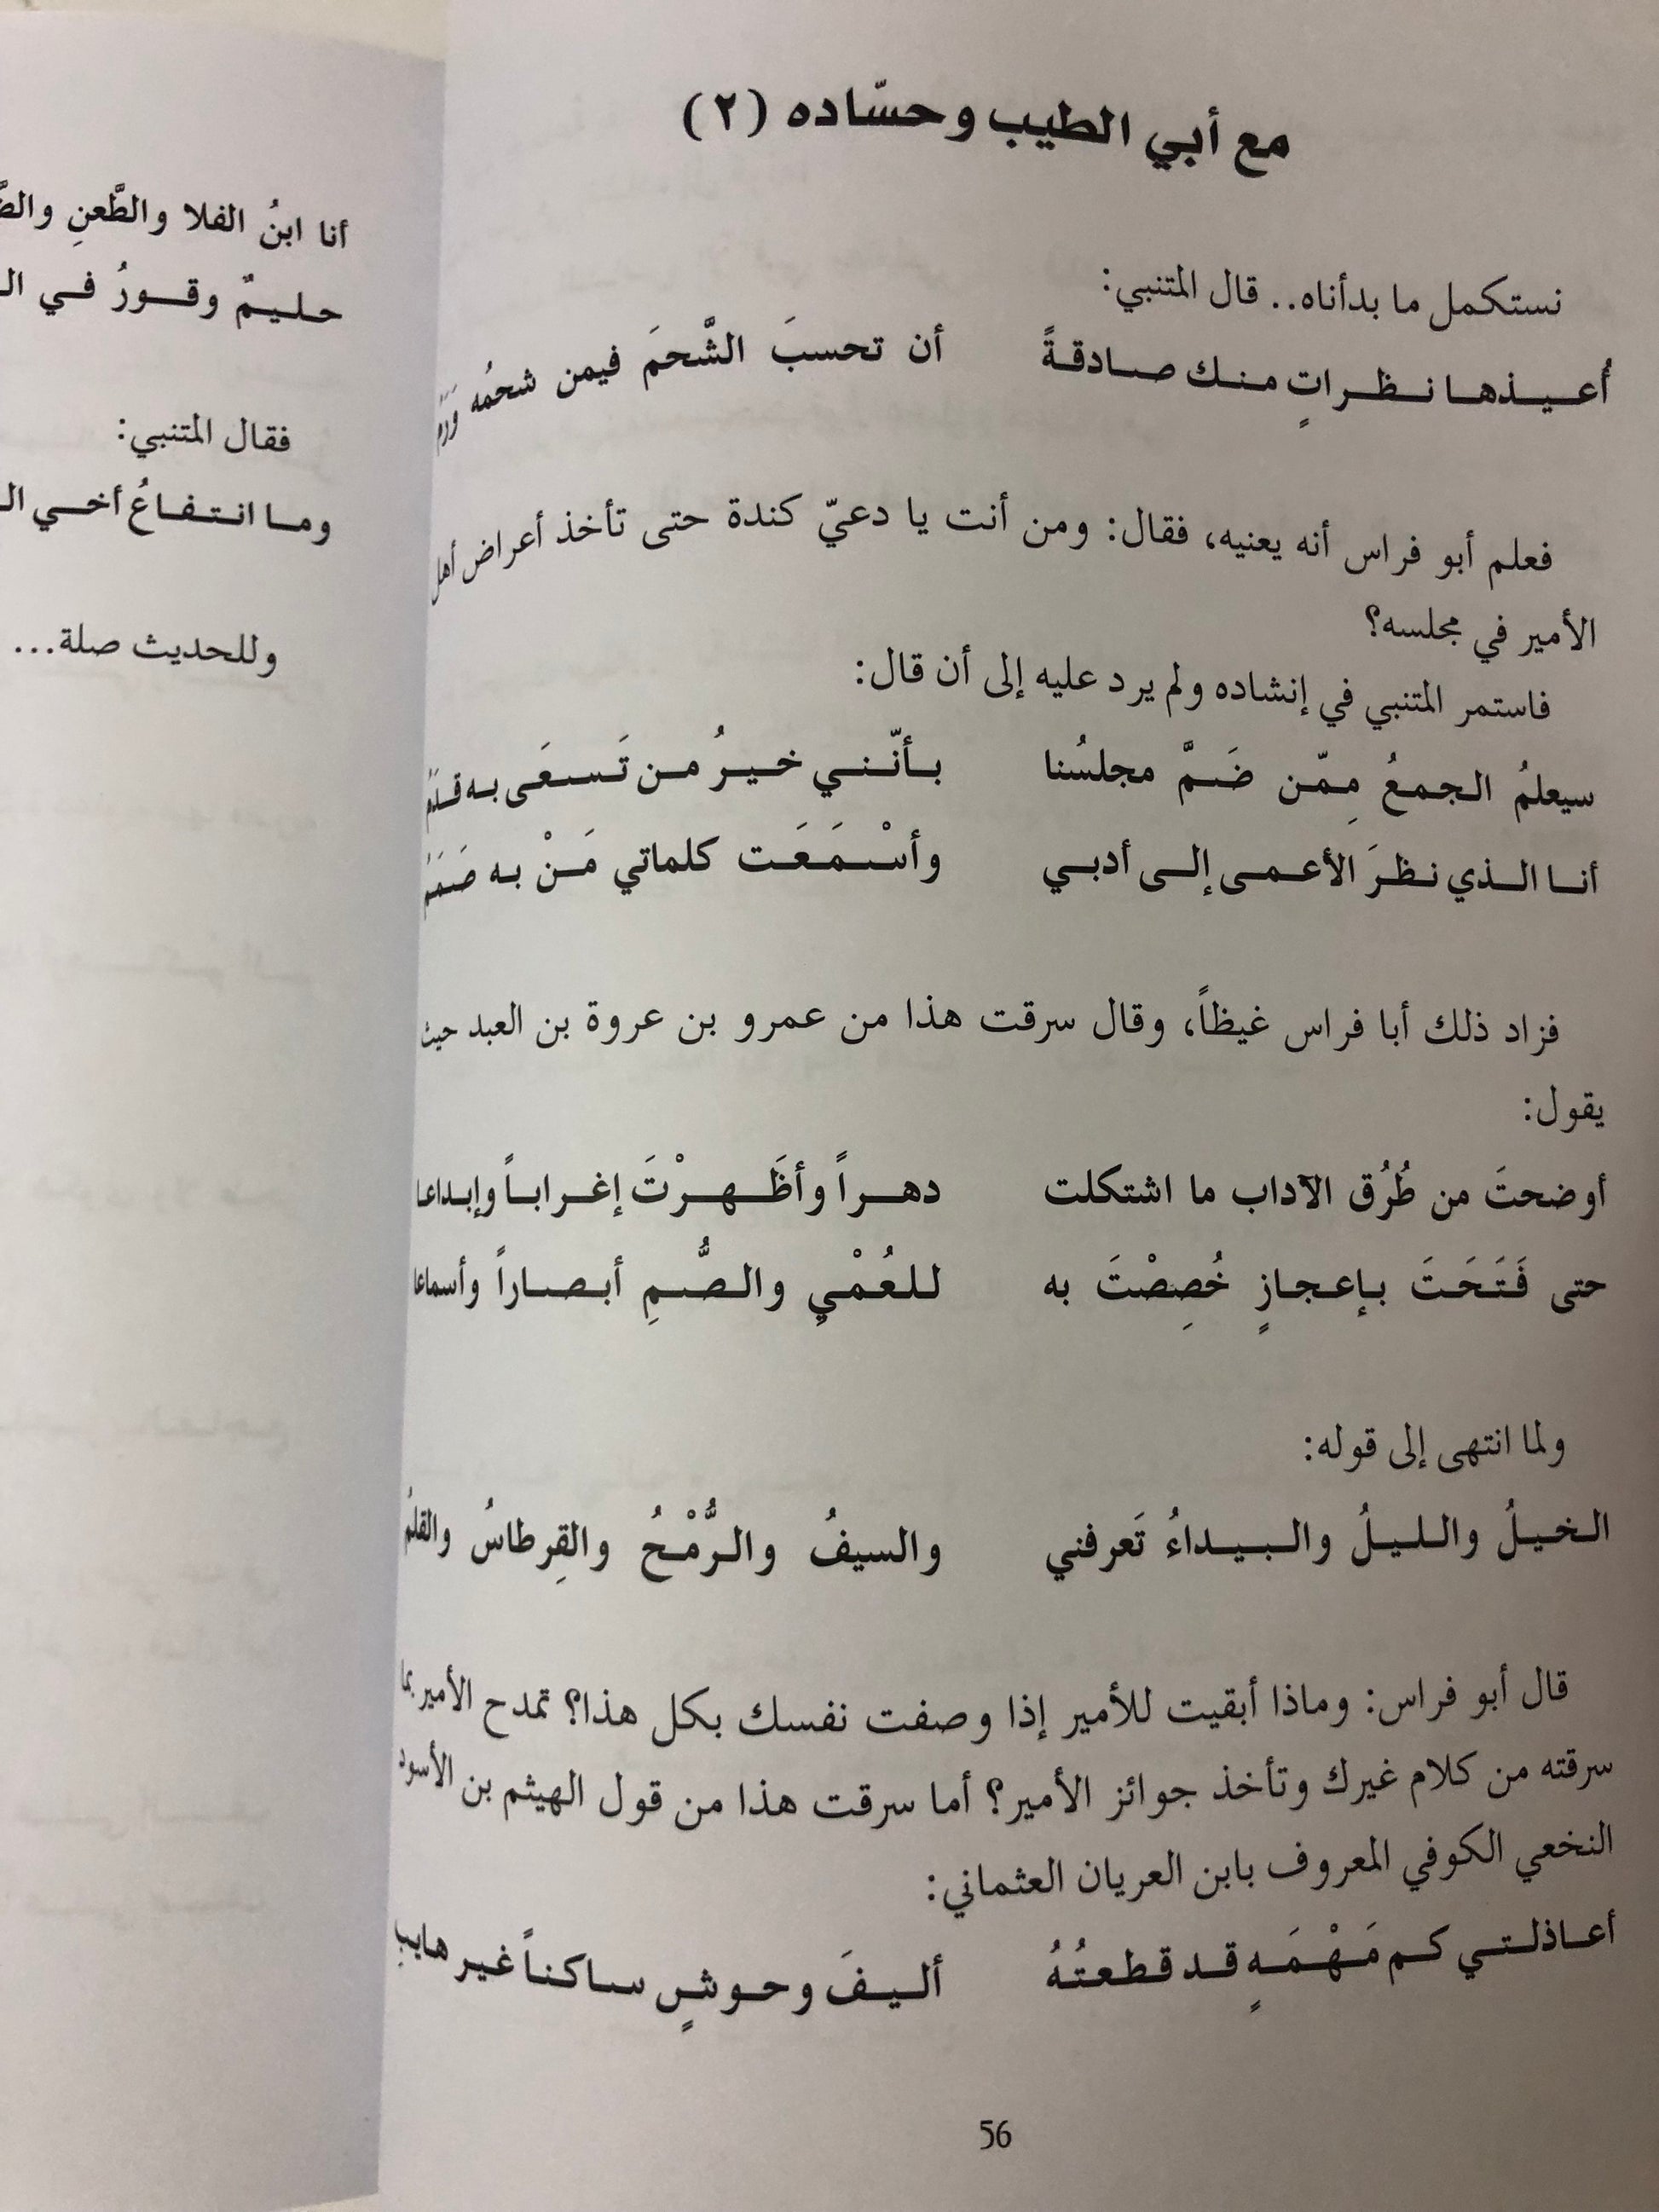 مع أبي الطيب وحسّاده (٢)
نستكمل ما بدأناه.. قال المتنبي:
أُعـيـذهـا نـظـراتٍ مـنـك صـادقـةً أن تحسبَ الشَّحمَ فيمن شحمُه وَرَمُ
فعلم أبو فراس أنه يعنيه، فقال: ومن أنت يا دعيّ كندة حتى تأخذ أعراض أهل
الأمير في مجلسه؟
فاستمر المتنبي في إنشاده ولم يرد عليه إلى أن قال:
سيعلمُ الـجمعُ مِمّن ضَمَّ مجلسُنا بـأنّـنـي خـيـرُ مـن تَـسـعَـى بـه قـدَمُ
أنـا الـذي نـظـرَ الأعـمـى إلـى أدبـي وأسْـمَـعَـت كلماتي مَـنْ بـه صَمَمُ
فزاد ذلك أبا فراس غيظاً، وقال سرقت هذا من عمرو بن عروة بن العبد حيث
يقول:
أوضحتَ من طُرُق الآداب ما اشتكلت دهـراً وأظَـهـرْتَ إغـرابـاً وإبـداعـا
حتى فَتَحَتَ بـإعـجـازٍ خُصِصْتَ به لـلـعُـمْـيِ والـصُّـمِ أبـصـاراً وأسماعا
ولما انتهى إلى قوله:
الـخـيـلُ والـلـيـلُ والـبـيـداءُ تَعرفني والسيفُ والـرُّمْـحُ والقِرطاسُ والقلمُ
قال أبو فراس: وماذا أبقيت للأمير إذا وصفت نفسك بكل هذا؟ تمدح الأمير بما
سرقته من كلام غيرك وتأخذ جوائز الأمير؟ أما سرقت هذا من قول الهيثم بن الأسود
النخعي الكوفي المعروف بابن العريان العثماني:
أعـاذلـتـي كـم مَـهْـمَـهٍ قـد قـطـعـتُـهُ ألـيـفَ وحـوشٍ سـاكـنـاً غـيـر هـايـبِ
56
أنا ابنُ الفلا والطَّعنِ
حـلـيـمٌ وقـورُ فـي
فقال المتنبي:
ومـا انـتـفـاعُ أخـي
وللحديث صلة...